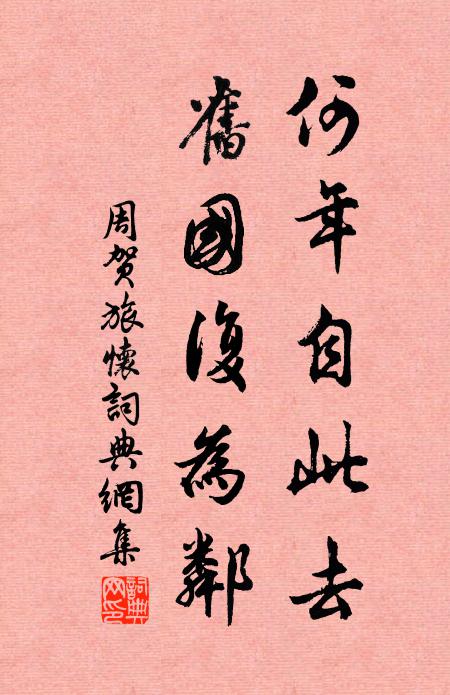 何年自此去
舊國復為鄰
周賀旅懷詞典網集
詞典网印